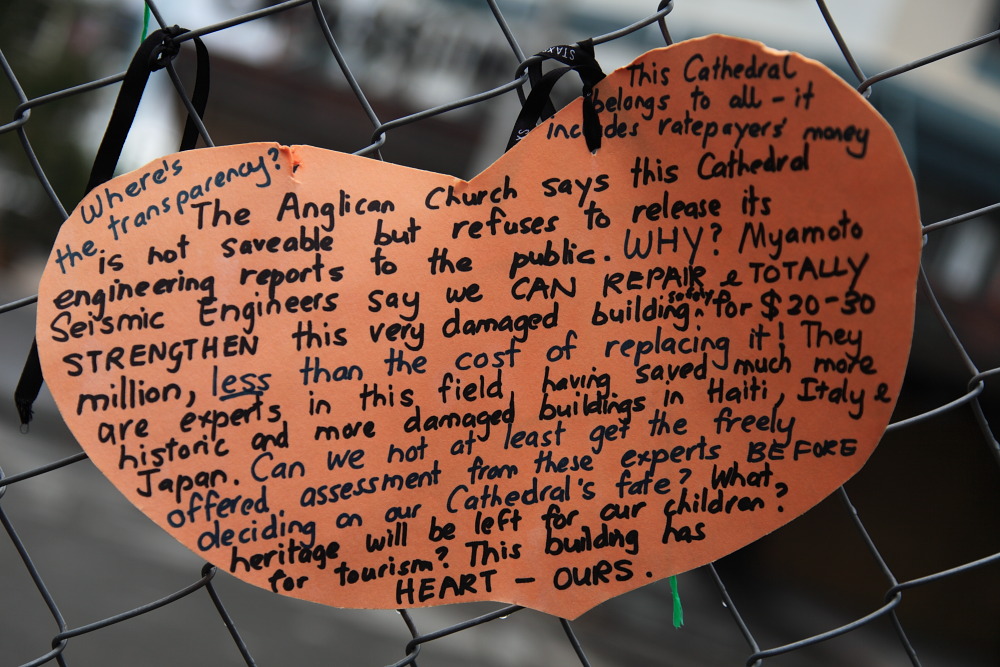 This Cathedral
belongs to all - it
includes ratepayers' money
Where's
the transparency?
The Anglican Church says this Cathedral
is not saveable but refuses to release its
engineering reports to the public. WHY? Myamoto
Seismic Engineers say we CAN REPAIR & TOTALLY
STRENGTHEN this very damaged building safely for $20-30
million, less than the cost of replacing it! They
are experts in this field, having saved much more
historic and more damaged buildings in Haiti, Italy &
Japan. Can we not at least get the freely
offered, assessment from these experts BEFORE
deciding on our Cathedral's fate? What
heritage will be left for our children?
for tourism? This building has
HEART - OURS.
STAX